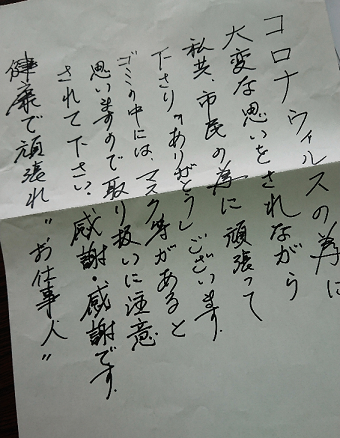 コロナウィルスの為に
大変な思いをされながら
私共、市民の為に頑張って
下さり〃ありがとうございます。
ゴミの中には、マスク等があると
思いますので取り扱いに注意
されて下さい。感謝・感謝です。
健康で頑張れ〝お仕事人〟